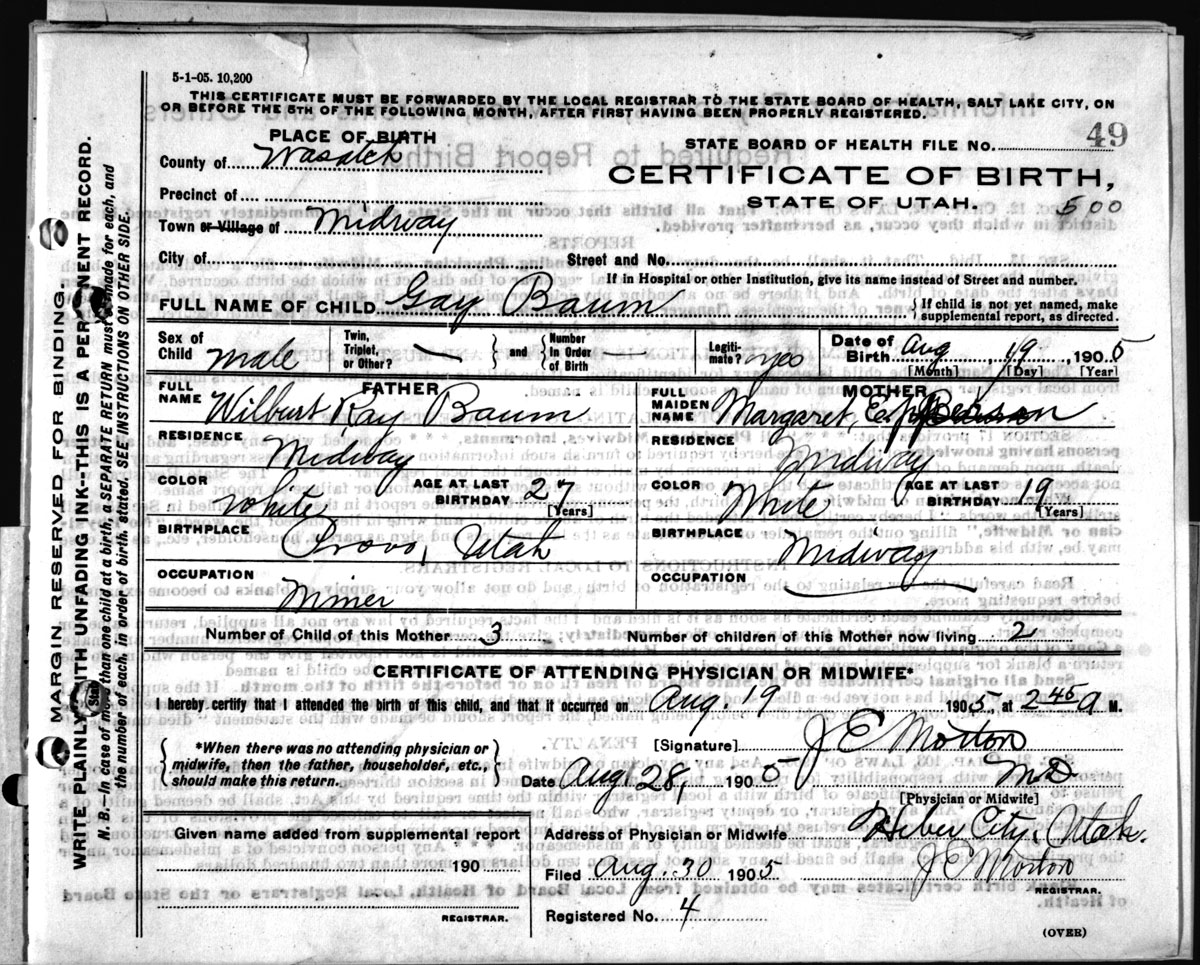 5-1-05. 10,200
THIS CERTIFICATE MUST BE FORWARDED BY THE LOCAL REGISTRAR TO THE STATE BOARD OF HEALTH, SALT LAKE CITY, ON
OR BEFORE THE 5TH OF THE FOLLOWING MONTH, AFTER FIRST HAVING BEEN PROPERLY REGISTERED.
PLACE OF BIRTH
County of Wasatch
Precinct of
Town or Village of Midway
City of
STATE BOARD OF HEALTH FILE NO. 49
CERTIFICATE OF BIRTH,
STATE OF UTAH. 500
Street and No.
If in Hospital or other Institution, give its name instead of Street and number.
FULL NAME OF CHILD Gay Baum
{ If child is not yet named, make
supplemental report, as directed.
Sex of Child male
Twin, Triplet, or Other? —
} and {
Number In Order of Birth —
Legiti-mate? yes
Date of Birth Aug, 19, 1905
[Month] [Day] [Year]
FATHER
FULL NAME Wilburt Ray Baum
RESIDENCE Midway
COLOR White
AGE AT LAST BIRTHDAY 27
[Years]
BIRTHPLACE Provo, Utah
OCCUPATION Miner
MOTHER
FULL MAIDEN NAME Margaret, E.
RESIDENCE Midway
COLOR White
AGE AT LAST BIRTHDAY 19
[Years]
BIRTHPLACE Midway
OCCUPATION
Number of Child of this Mother 3
Number of children of this Mother now living 2
CERTIFICATE OF ATTENDING PHYSICIAN OR MIDWIFE*
I hereby certify that I attended the birth of this child, and that it occurred on Aug. 19 1905, at 2 45 a M.
{ *When there was no attending physician or
midwife, then the father, householder, etc.,
should make this return. }
[Signature] J E Morton
Date Aug. 28, 1905 M.D.
[Physician or Midwife]
Address of Physician or Midwife Heber City, Utah.
Filed Aug. 30 1905 J E Morton
REGISTRAR.
Registered No. 4
(OVER)
Given name added from supplemental report
190
REGISTRAR.
MARGIN RESERVED FOR BINDING.
WRITE PLAINLY WITH UNFADING INK--THIS IS A PERMANENT RECORD.
N. B.--In case of more than one child at a birth, a SEPARATE RETURN must be made for each, and
the number of each, in order of birth, stated. SEE INSTRUCTIONS ON OTHER SIDE.